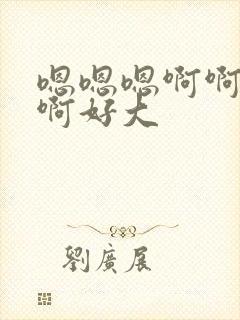 嗯嗯嗯啊啊
啊好大
劉廣展